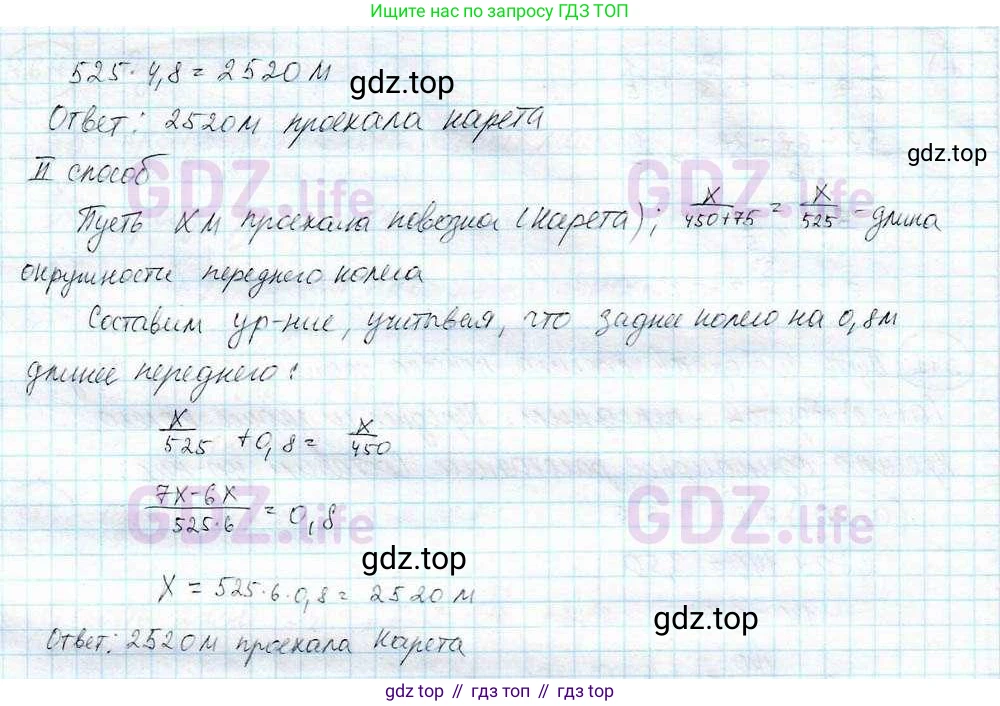 Ищите нас по запросу ГДЗ ТОП
525 · 4,8 = 2520 м
gdz.top
Ответ: 2520 м проехала карета
gdz.top
II способ
GDZ.life GDZ.life
Пусть x м проехала повозка (карета); x/(450+75) = x/525 - длина
окружности переднего колеса
Составим ур-ние, учитывая, что заднее колесо на 0,8 м
длинее переднего:
x/525 + 0,8 = x/450
GDZ.life GDZ.life
(7x-6x)/(525·6) = 0,8
gdz.top
x = 525·6·0,8 = 2520 м
gdz.top
Ответ: 2520 м проехала карета
gdz.top // гдз топ // гдз top